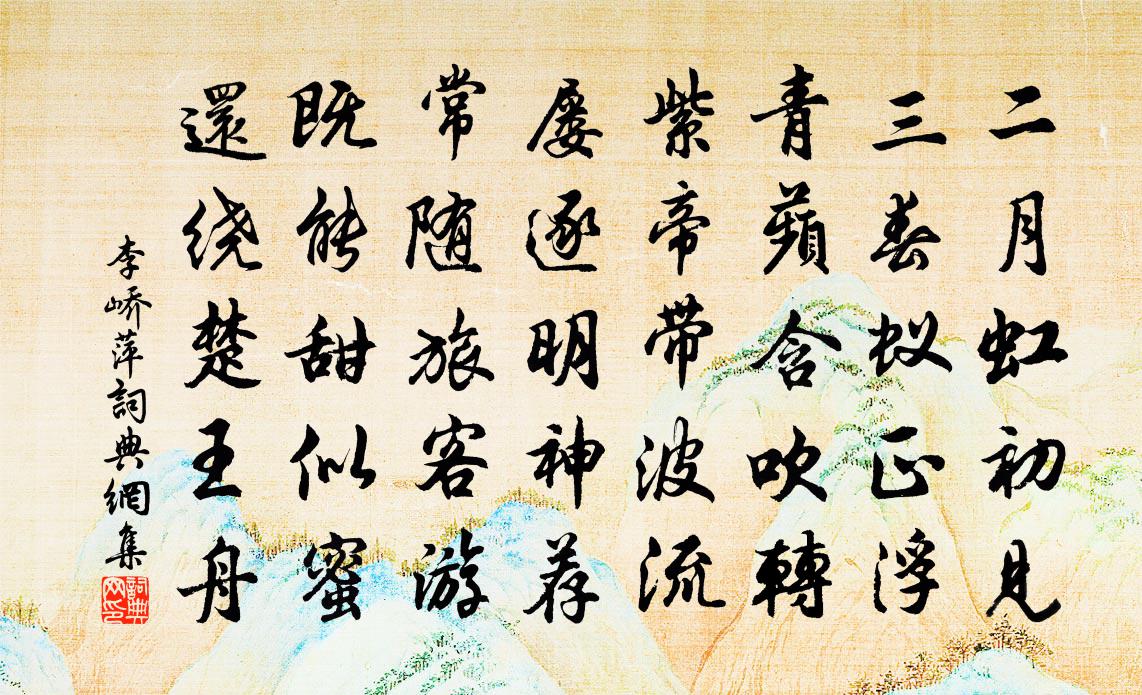 二月虹初見
三春蚁正浮
青蘋含吹轉
紫帝带波流
屡逐明神荐
常随旅客游
既能甜似蜜
還绕楚王舟
李峤萍詞典網集
詞典网印